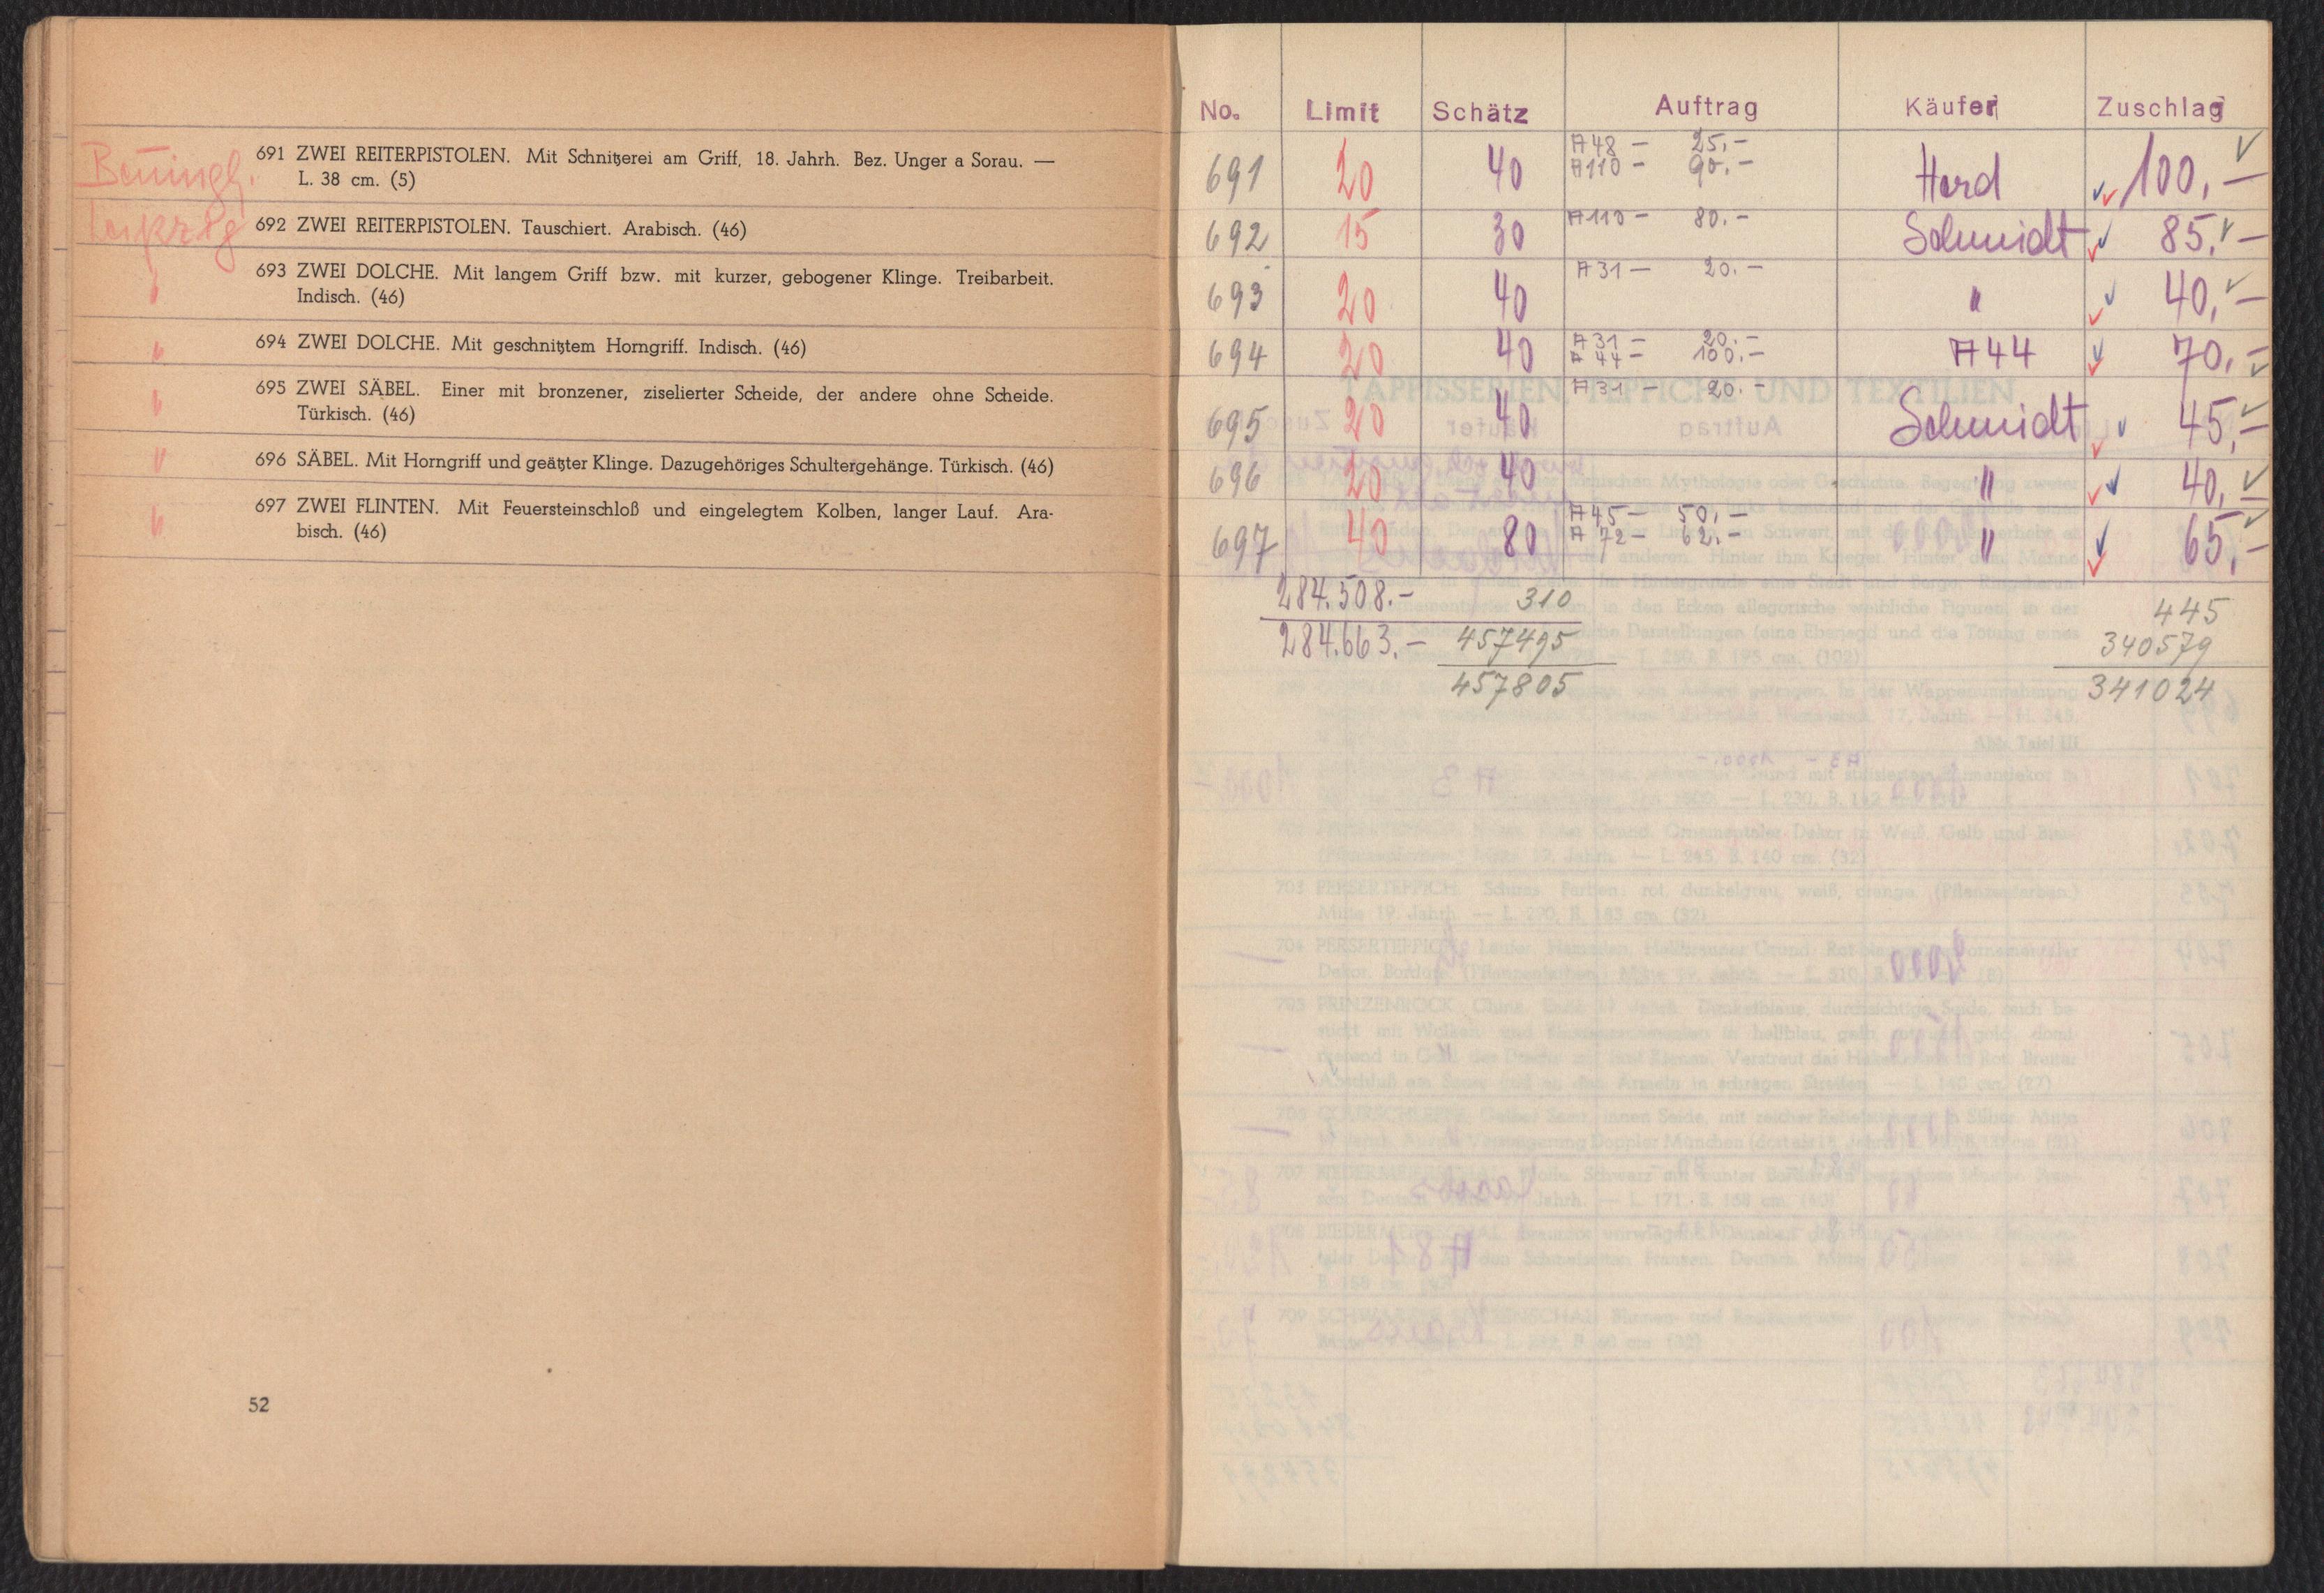 691 ZWEI REITERPISTOLEN. Mit Schnitzerei am Griff, 18. Jahrh. Bez. Unger a Sorau. —
L. 38 cm. (5)
Leipzig
692 ZWEI REITERPISTOLEN. Tauschiert. Arabisch. (46)
693 ZWEI DOLCHE. Mit langem Griff bzw. mit kurzer, gebogener Klinge. Treibarbeit.
Indisch. (46)
694 ZWEI DOLCHE. Mit geschnitztem Horngriff. Indisch. (46)
695 ZWEI SÄBEL. Einer mit bronzener, ziselierter Scheide, der andere ohne Scheide.
Türkisch. (46)
696 SÄBEL. Mit Horngriff und geätzter Klinge. Dazugehöriges Schultergehänge. Türkisch. (46)
697 ZWEI FLINTEN. Mit Feuersteinschloß und eingelegtem Kolben, langer Lauf. Ara-
bisch. (46)
52
No. Limit Schätz Auftrag Käufer Zuschlag
A48 — 25,—
691 20 40 A110 — 90.— Herd 100,—
692 15 30 A110 — 80.— Schmidt 85,—
693 20 40 A31 — 20.— " 40,—
A31 — 20.—
694 20 40 A44 — 100.— A44 70,—
695 20 40 A31 — 20.— Schmidt 45,—
696 20 40 " 40,—
A45 — 50,—
697 40 80 A72 — 62.— " 65,—
284.508.— 310 445
284.663.— 457495 340579
457805 341024